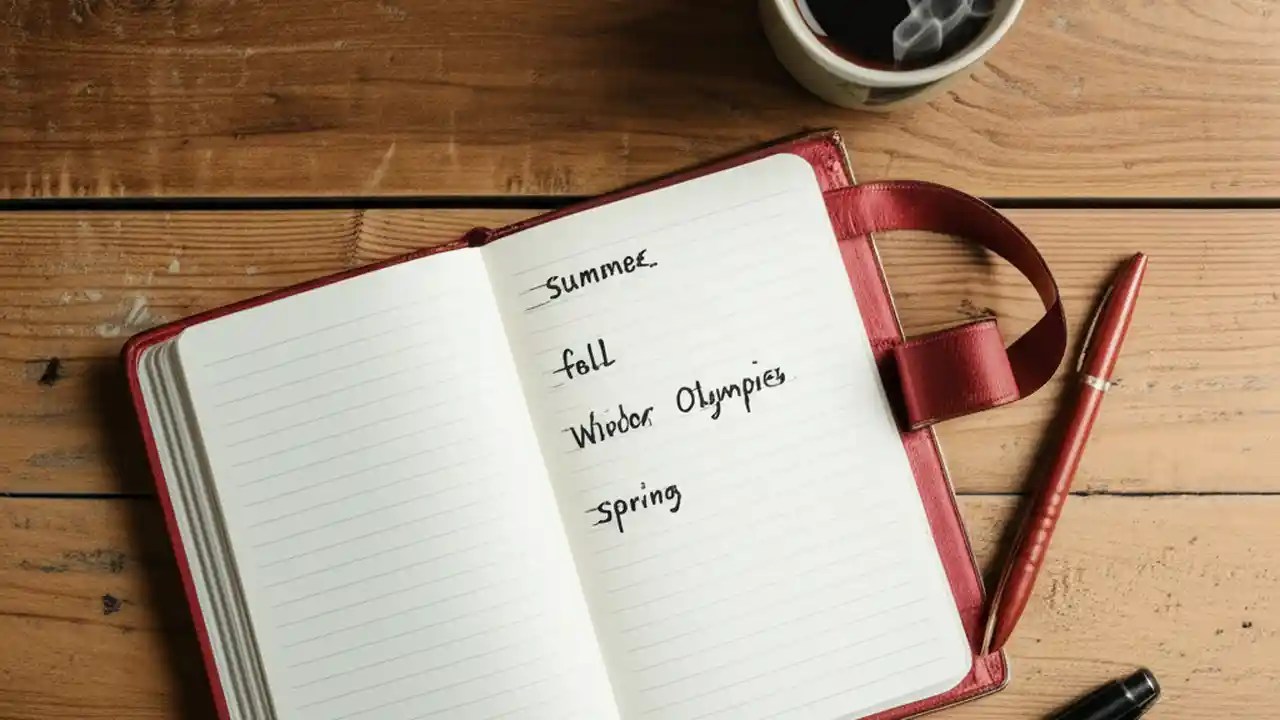 summer
fall
Winter Olympics
spring